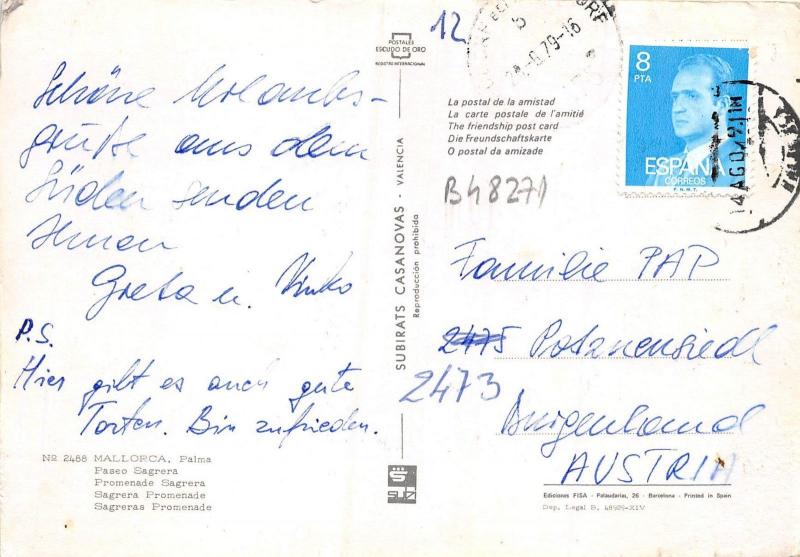 Schöne Urlaubs-
grüße aus dem
Süden senden
Ihnen
Greta u. Vinko
P.S.
Hier gibt es auch gute
Torten. Bin zufrieden.
Nº 2488 MALLORCA, Palma
Paseo Sagrera
Promenade Sagrera
Sagrera Promenade
Sagreras Promenade
POSTALES
ESCUDO DE ORO
REGISTRO INTERNACIONAL
SUBIRATS CASANOVAS - VALENCIA
Reproducción prohibida
SUBI
12
La postal de la amistad
La carte postale de l'amitié
The friendship post card
Die Freundschaftskarte
O postal da amizade
B48271
8
PTA
ESPAÑA
CORREOS
F.N.M.T.
14 AGO 79
Familie PAP
2475 Potzneusiedl
2473
Burgenland
AUSTRIA
Ediciones FISA - Palaudarias, 26 - Barcelona - Printed in Spain
Dep. Legal B. 48929-XIV